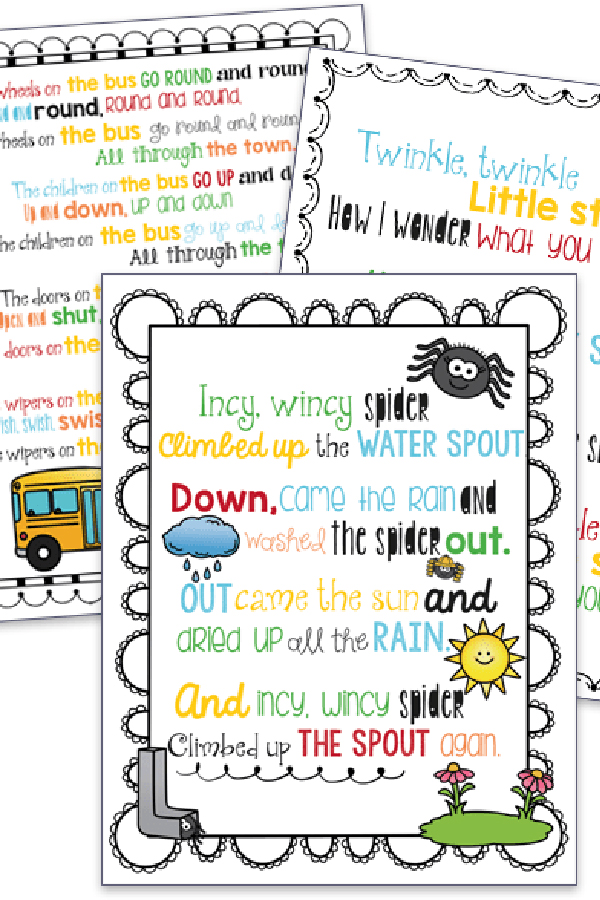 wheels on the bus GO ROUND and round
and round, Round and Round.
wheels on the bus go round and round
All through the town.
The children on the bus GO UP and
Up and down, up and down
the children on the bus go up and
All through the
The doors on
Open and shut,
doors on the
wipers on the
swish, swish
wipers on the
Twinkle, twinkle
Little
How I wonder what you
Incy, wincy spider
Climbed up the WATER SPOUT
Down, came the Rain and
washed the spider out.
OUT came the sun and
dried up all the RAIN.
And incy, wincy spider
Climbed up THE SPOUT again.